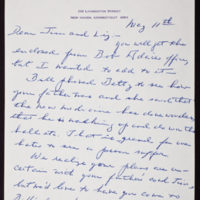 May 11th
Dear Jim and Liz -
you will get the
enclosed from Bob Adams office,
but I wanted to add to it -
Bill phoned Betty to see how
your father was and she said that
the new medicine has done wonders
that he is walking up and down the
halls etc. That is grand for we
hate to see a person suffer.
We realize your plans are un-
certain with your father and Jim,
but we'd love to have you come on